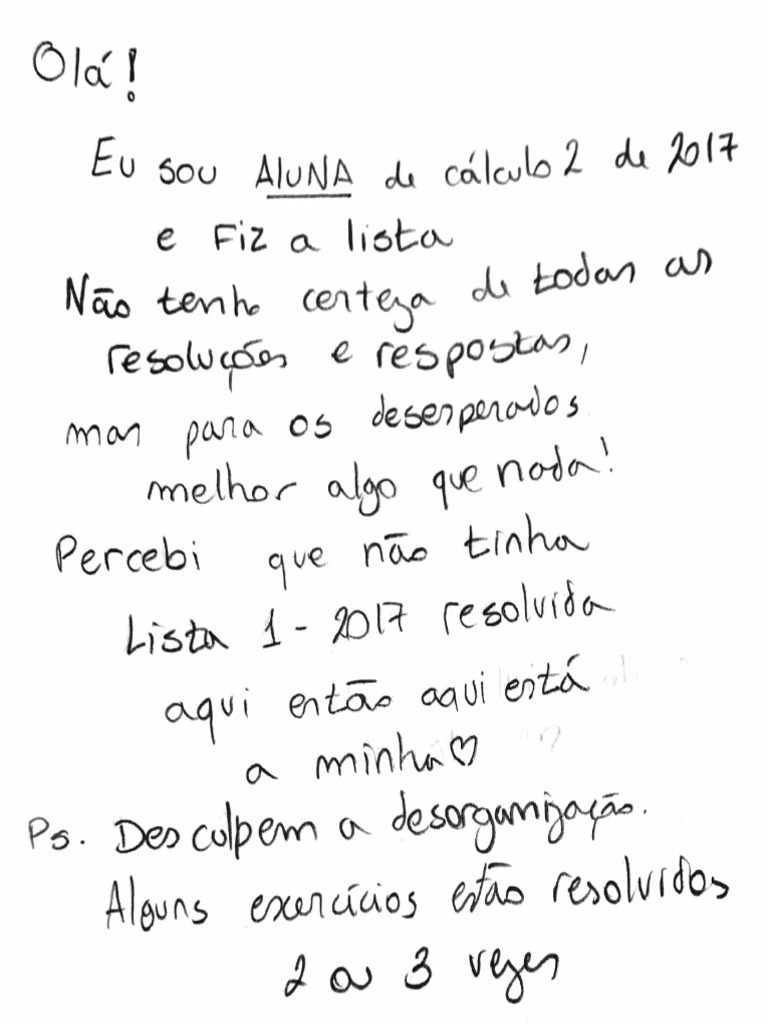 Olá!
Eu sou ALUNA de cálculo 2 de 2017
e Fiz a lista
Não tenho certeza de todas as
resoluções e respostas,
mas para os desesperados
melhor algo que nada!
Percebi que não tinha
Lista 1 - 2017 resolvida
aqui então aqui está
a minha♡
Ps. Desculpem a desorganização.
Alguns exercícios estão resolvidos
2 a 3 vezes